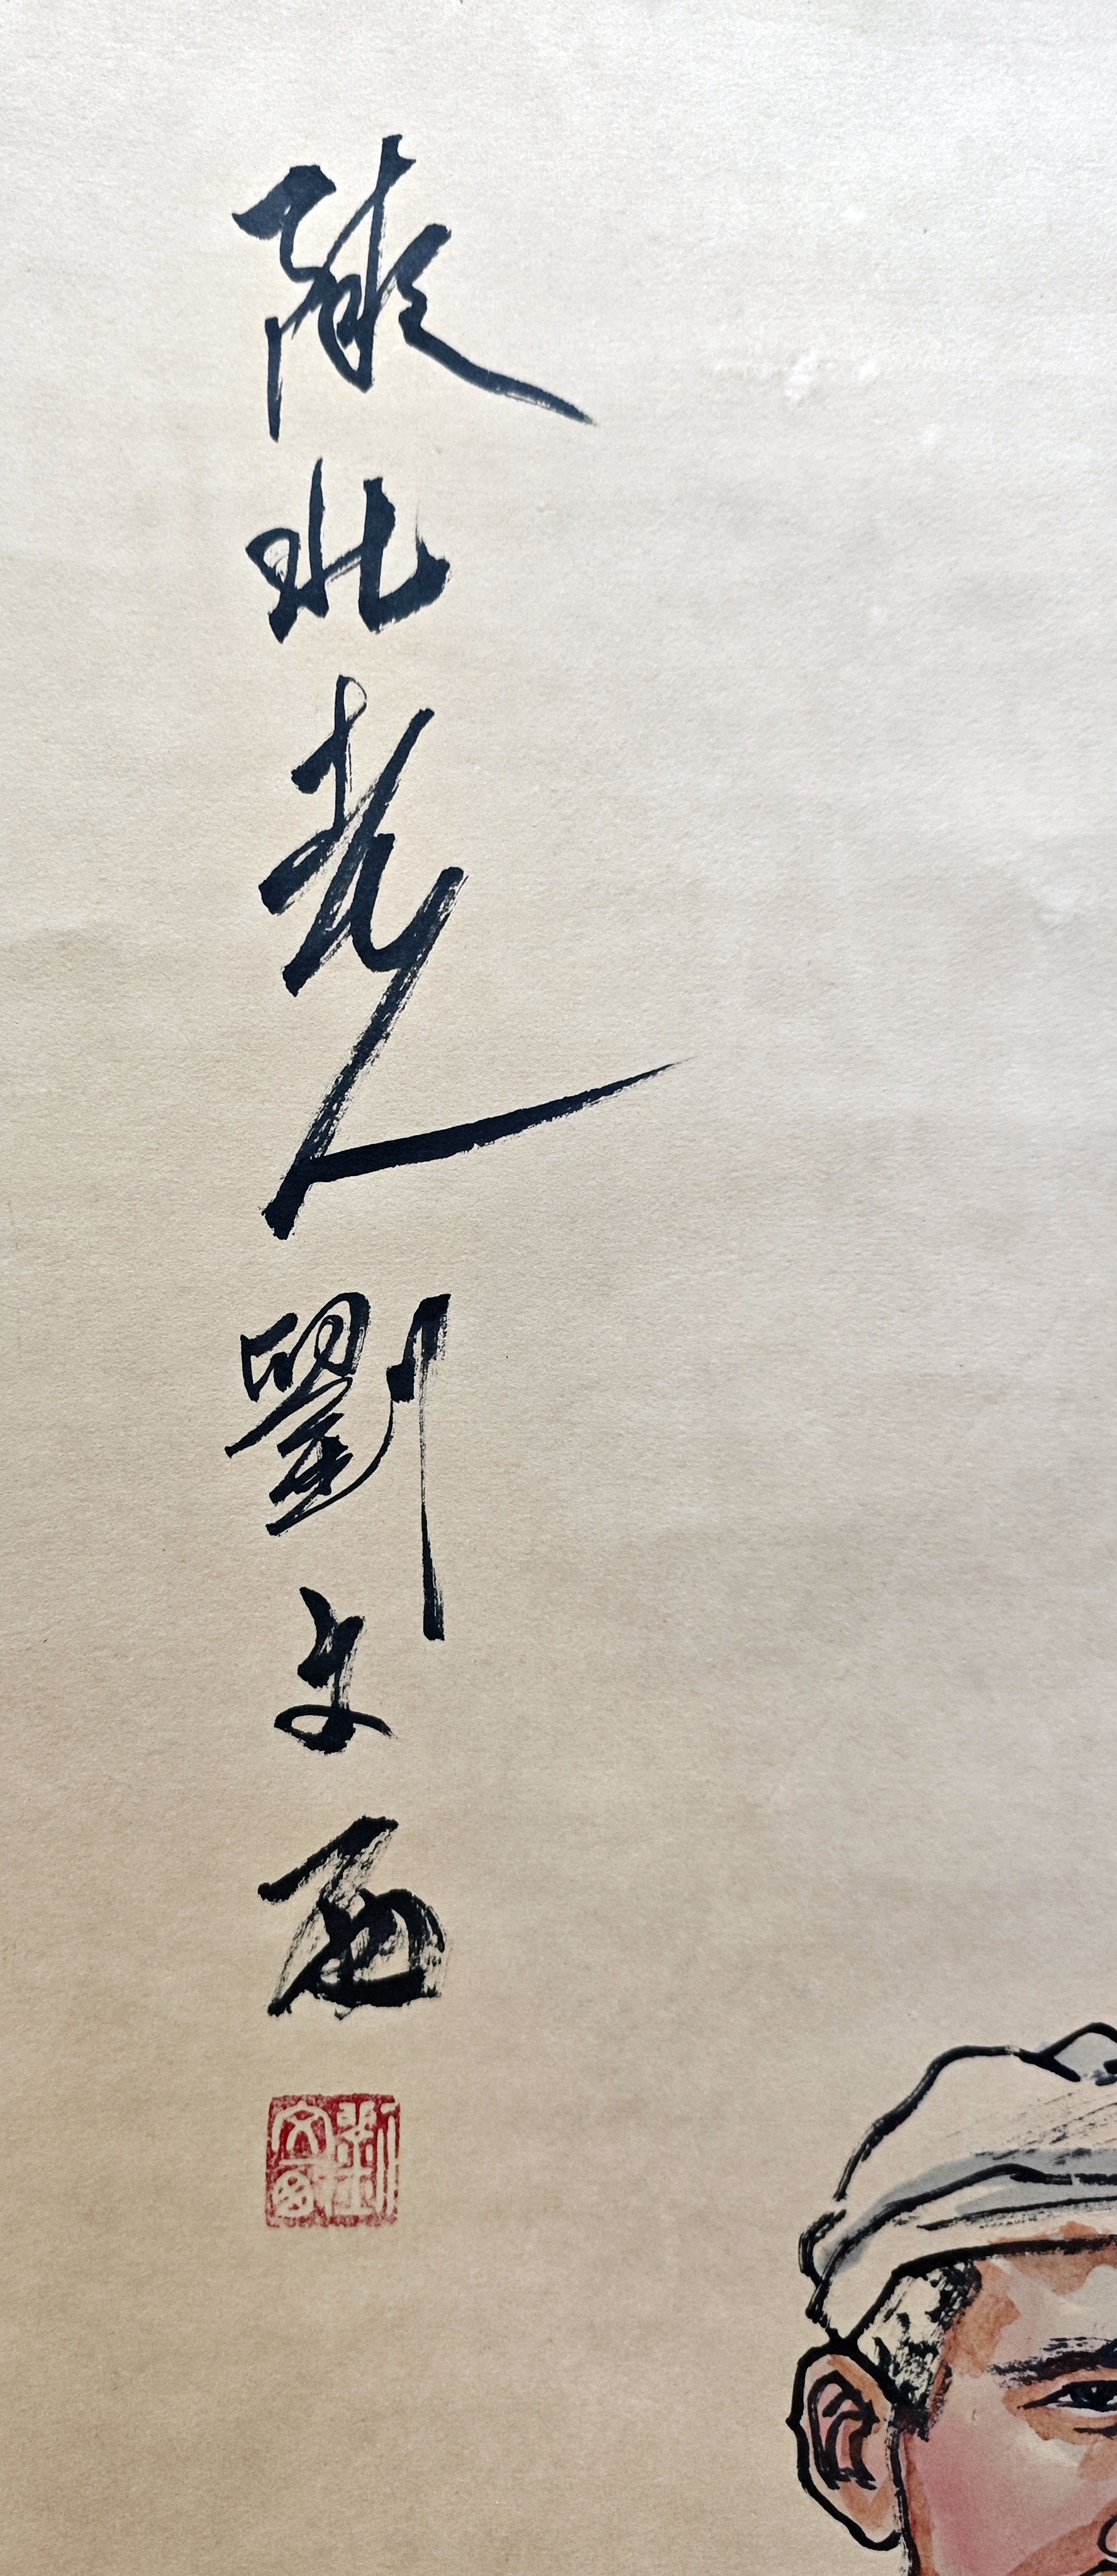 陝北老人劉文西
劉文西